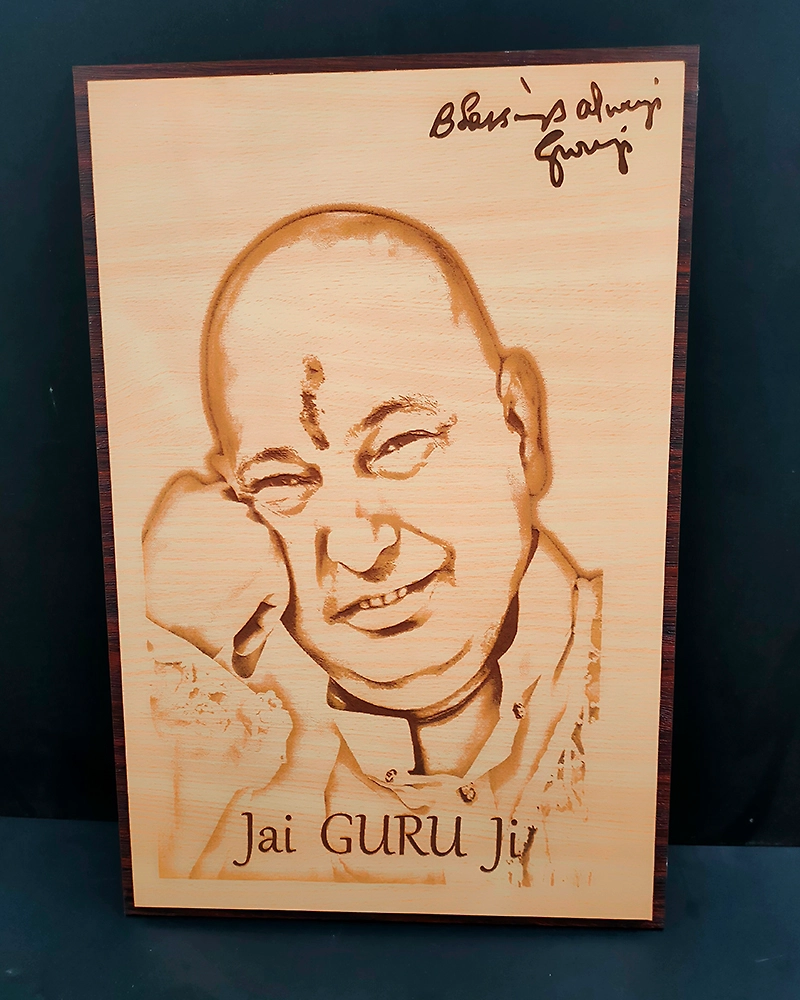 Blessings always
Guruji
Jai GURU Ji